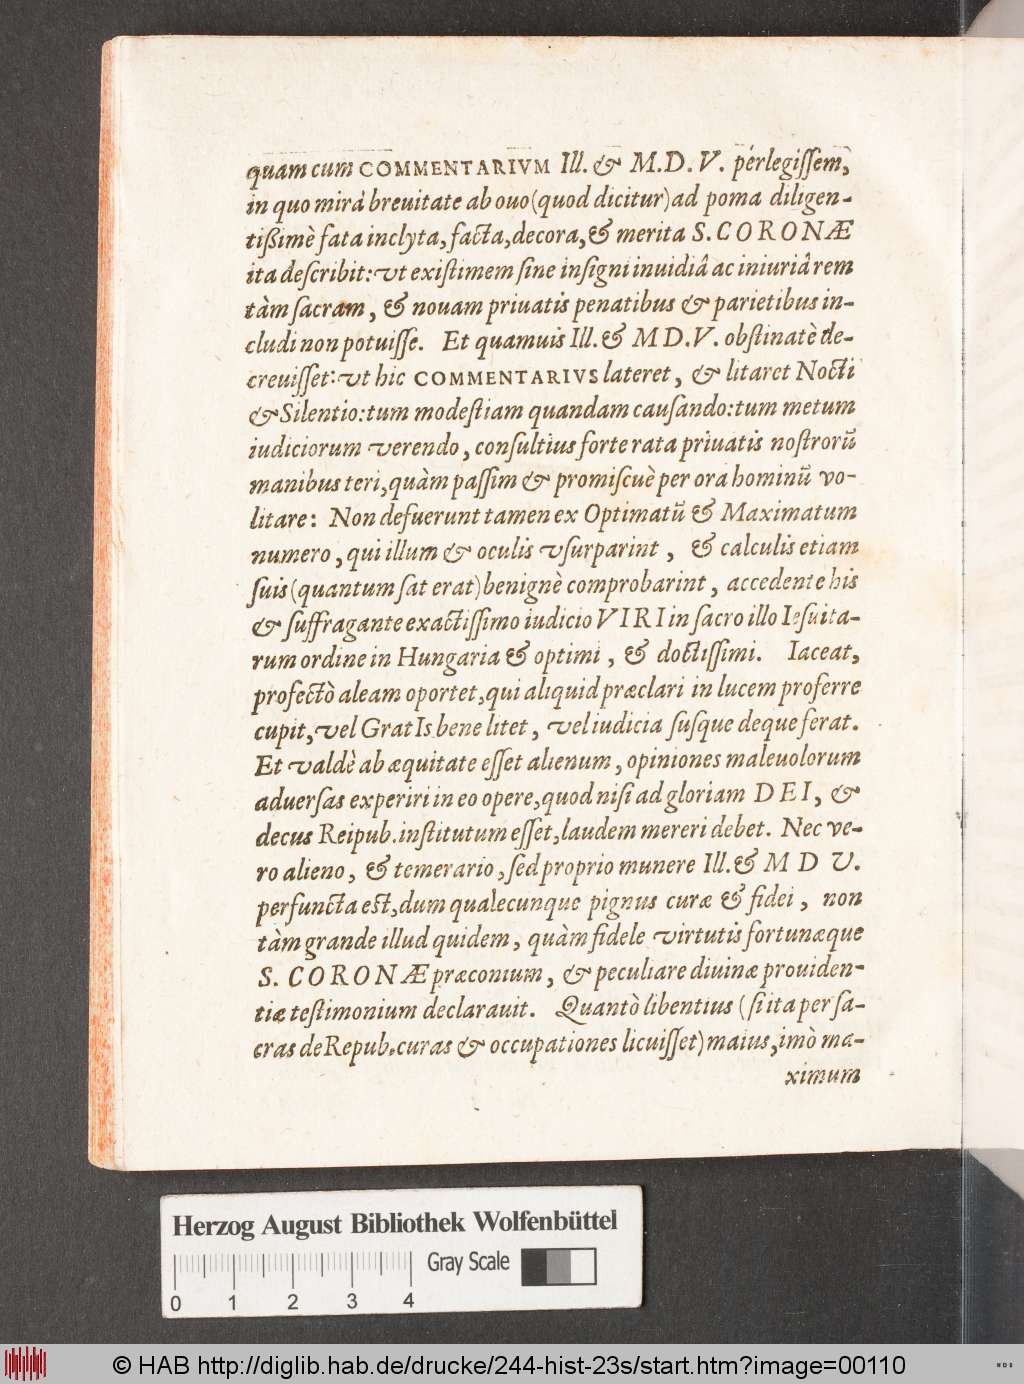 quam cum COMMENTARIVM Ill. & M. D. V. pérlegissem,
in quo mirâ breuitate ab ouo (quod dicitur) ad poma diligen-
tißimè fata inclyta, facta, decora, & merita S. CORONÆ
ita describit: vt existimem sine insigni inuidiâ ac iniuriâ rem
tàm sacram, & nouam priuatis penatibus & parietibus in-
cludi non potuisse. Et quamuis Ill. & M D. V. obstinatè de-
creuisset: vt hic COMMENTARIVS lateret, & litaret Nocti
& Silentio: tum modestiam quandam causando: tum metum
iudiciorum verendo, consultius forte rata priuatis nostrorũ
manibus teri, quàm passim & promiscuè per ora hominũ vo-
litare: Non defuerunt tamen ex Optimatũ & Maximatum
numero, qui illum & oculis vsurparint, & calculis etiam
suis (quantum sat erat) benignè comprobarint, accedente his
& suffragante exactissimo iudicio VIRI in sacro illo Iesuita-
rum ordine in Hungaria & optimi, & doctissimi. Iaceat,
profectò aleam oportet, qui aliquid præclari in lucem proferre
cupit, vel GratIs bene litet, vel iudicia susque deque ferat.
Et valdè ab æquitate esset alienum, opiniones maleuolorum
aduersas experiri in eo opere, quod nisi ad gloriam DEI, &
decus Reipub. institutum esset, laudem mereri debet. Nec ve-
ro alieno, & temerario, sed proprio munere Ill. & M D V.
perfuncta est, dum qualecunque pignus curæ & fidei, non
tàm grande illud quidem, quàm fidele virtutis fortunæque
S. CORONÆ præconium, & peculiare diuinæ prouiden-
tiæ testimonium declarauit. Quantò libentius (si ita per sa-
cras de Repub. curas & occupationes licuisset) maius, imò ma-
ximum
Herzog August Bibliothek Wolfenbüttel
Gray Scale
0 1 2 3 4
© HAB http://diglib.hab.de/drucke/244-hist-23s/start.htm?image=00110